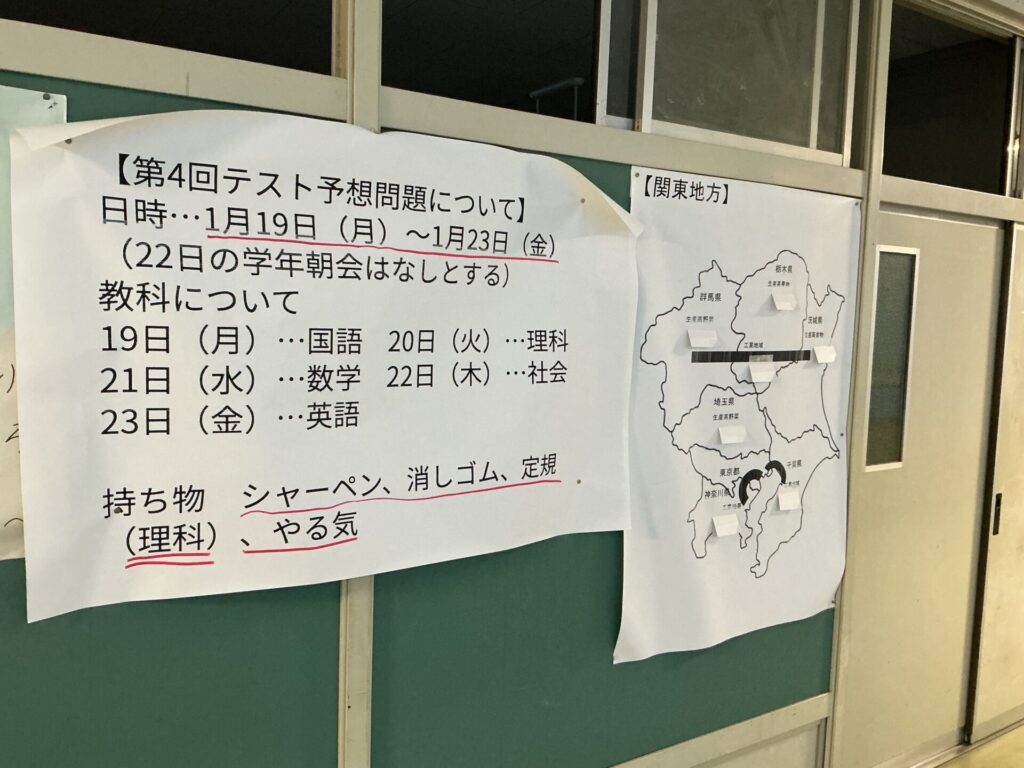 【第4回テスト予想問題について】
日時…1月19日（月）～1月23日（金）
（22日の学年朝会はなしとする）
教科について
19日（月）…国語　20日（火）…理科
21日（水）…数学　22日（木）…社会
23日（金）…英語
持ち物　シャーペン、消しゴム、定規
（理科）、やる気
【関東地方】
栃木県
群馬県
茨城県
工業地域
埼玉県
生産高野菜
東京都
千葉県
神奈川県